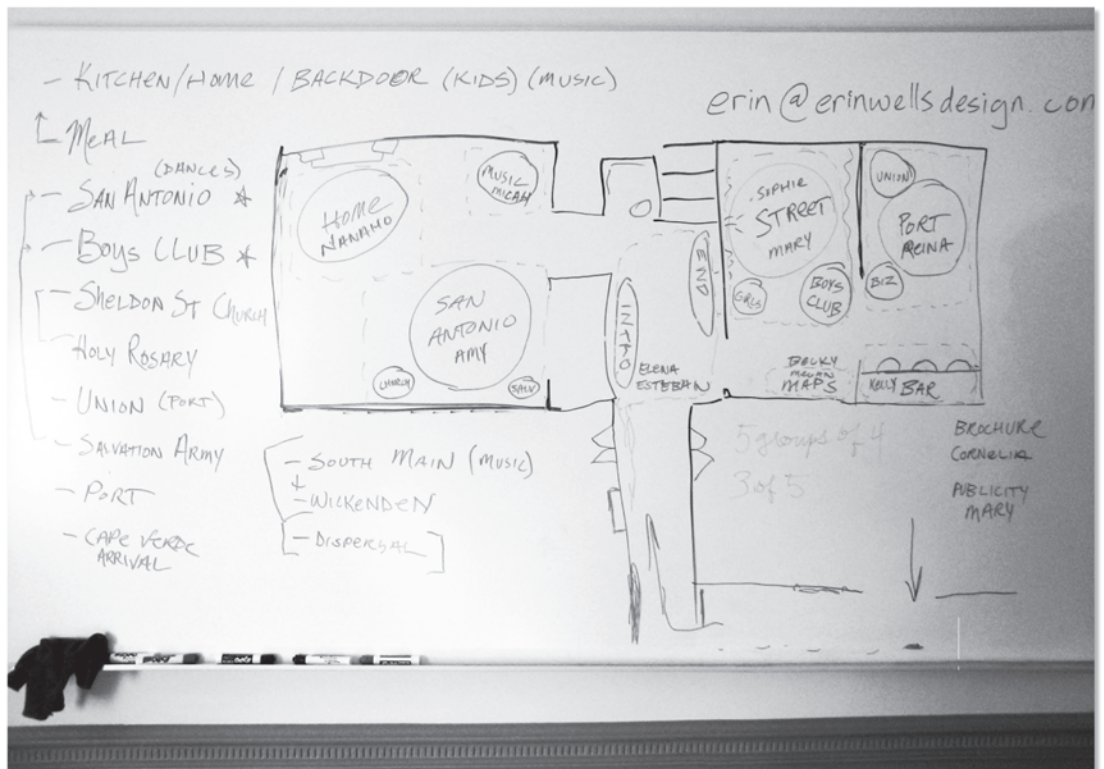 - KITCHEN/HOME / BACKDOOR (KIDS) (MUSIC)
erin@erinwellsdesign.com
MEAL
(DANCES)
- SAN ANTONIO ☆
- BOYS CLUB ☆
- SHELDON ST CHURCH
HOLY ROSARY
- UNION (PORT)
- SALVATION ARMY
- PORT
- CAPE VERDE
ARRIVAL
- SOUTH MAIN (MUSIC)
+
- WICKENDEN
- DISPERSAL
HOME
NANAMO
MUSIC
MICAH
SAN
ANTONIO
AMY
CHURCH
SALV
INTRO
END
ELENA
ESTEBAN
SOPHIE
STREET
MARY
GIRLS
BOYS
CLUB
UNION
PORT
REINA
BIZ
BECKY
MAPS
KELLY BAR
5 groups of 4
3 of 5
BROCHURE
CORNELIA
PUBLICITY
MARY